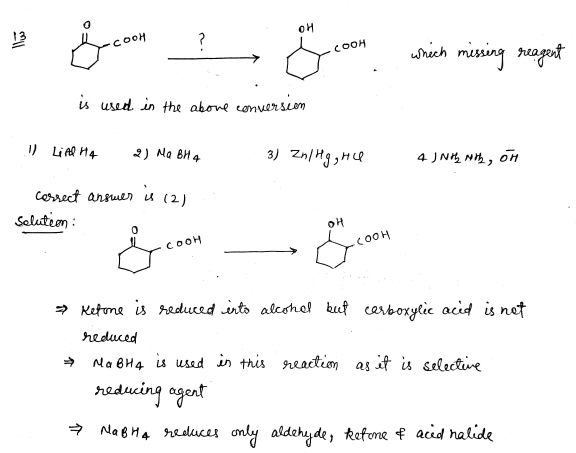 13 O COOH ? OH COOH . which missing reagent
is used in the above conversion
1) LiAlH4 2) NaBH4 3) Zn/Hg, HCl 4) NH2 NH2, OH
correct answer is (2)
Solution :
O COOH OH COOH
⇒ Ketone is reduced into alcohol but carboxylic acid is not
reduced
⇒ NaBH4 is used in this reaction as it is selective
reducing agent
⇒ NaBH4 reduces only aldehyde, ketone & acid halide